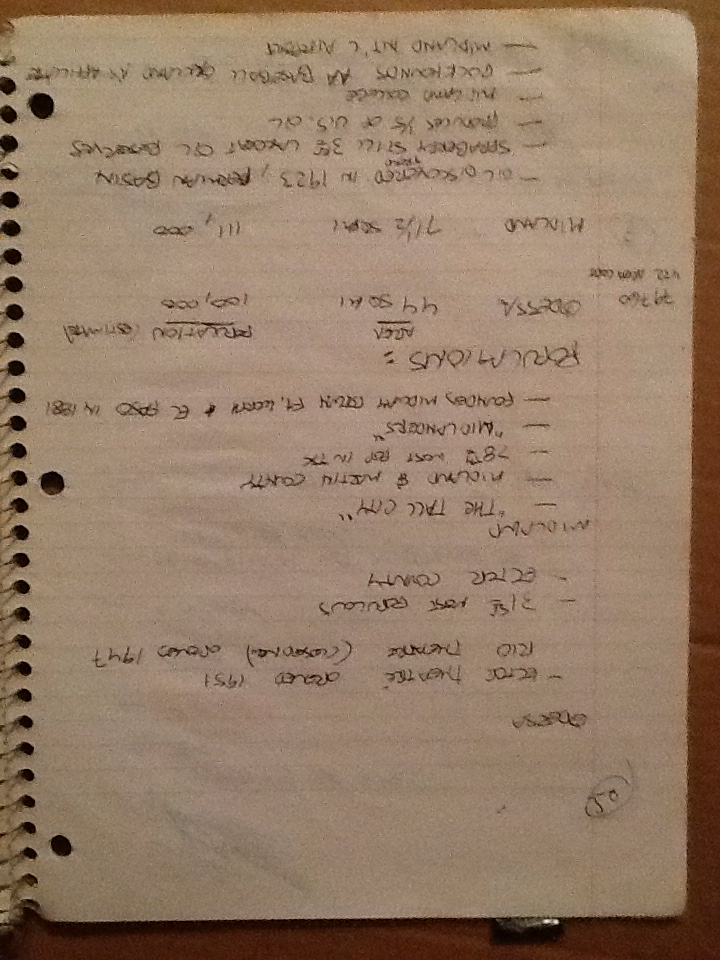 50
ODESSA
- ECTOR THEATRE OPENED 1951
RIO THEATRE (CLOSED NOW) OPENED 1947
- 31ST MOST POPULOUS
- ECTOR COUNTY
MIDLAND
- "THE TALL CITY"
- MIDLAND & MARTIN COUNTY
- 78TH MOST POP IN TX
- "MIDLANDERS"
- FOUNDED MIDWAY BETWN FT. WORTH & EL PASO IN 1881
POPULATIONS:
AREA POPULATION (ESTIMATE)
79760 ODESSA 44 SQ MI 100,000
432 AREA CODE
MIDLAND 71 1/2 SQ MI 111,000
- OIL DISCOVERED IN 1923, PERMIAN BASIN
TREND
- SPRABERRY STILL 3RD LARGEST OIL RESERVES
- PRODUCES 1/5 OF U.S. OIL
- MIDLAND COLLEGE
- ROCKHOUNDS AA BASEBALL OAKLAND A'S AFFILIATE
- MIDLAND INT'L AIRPORT